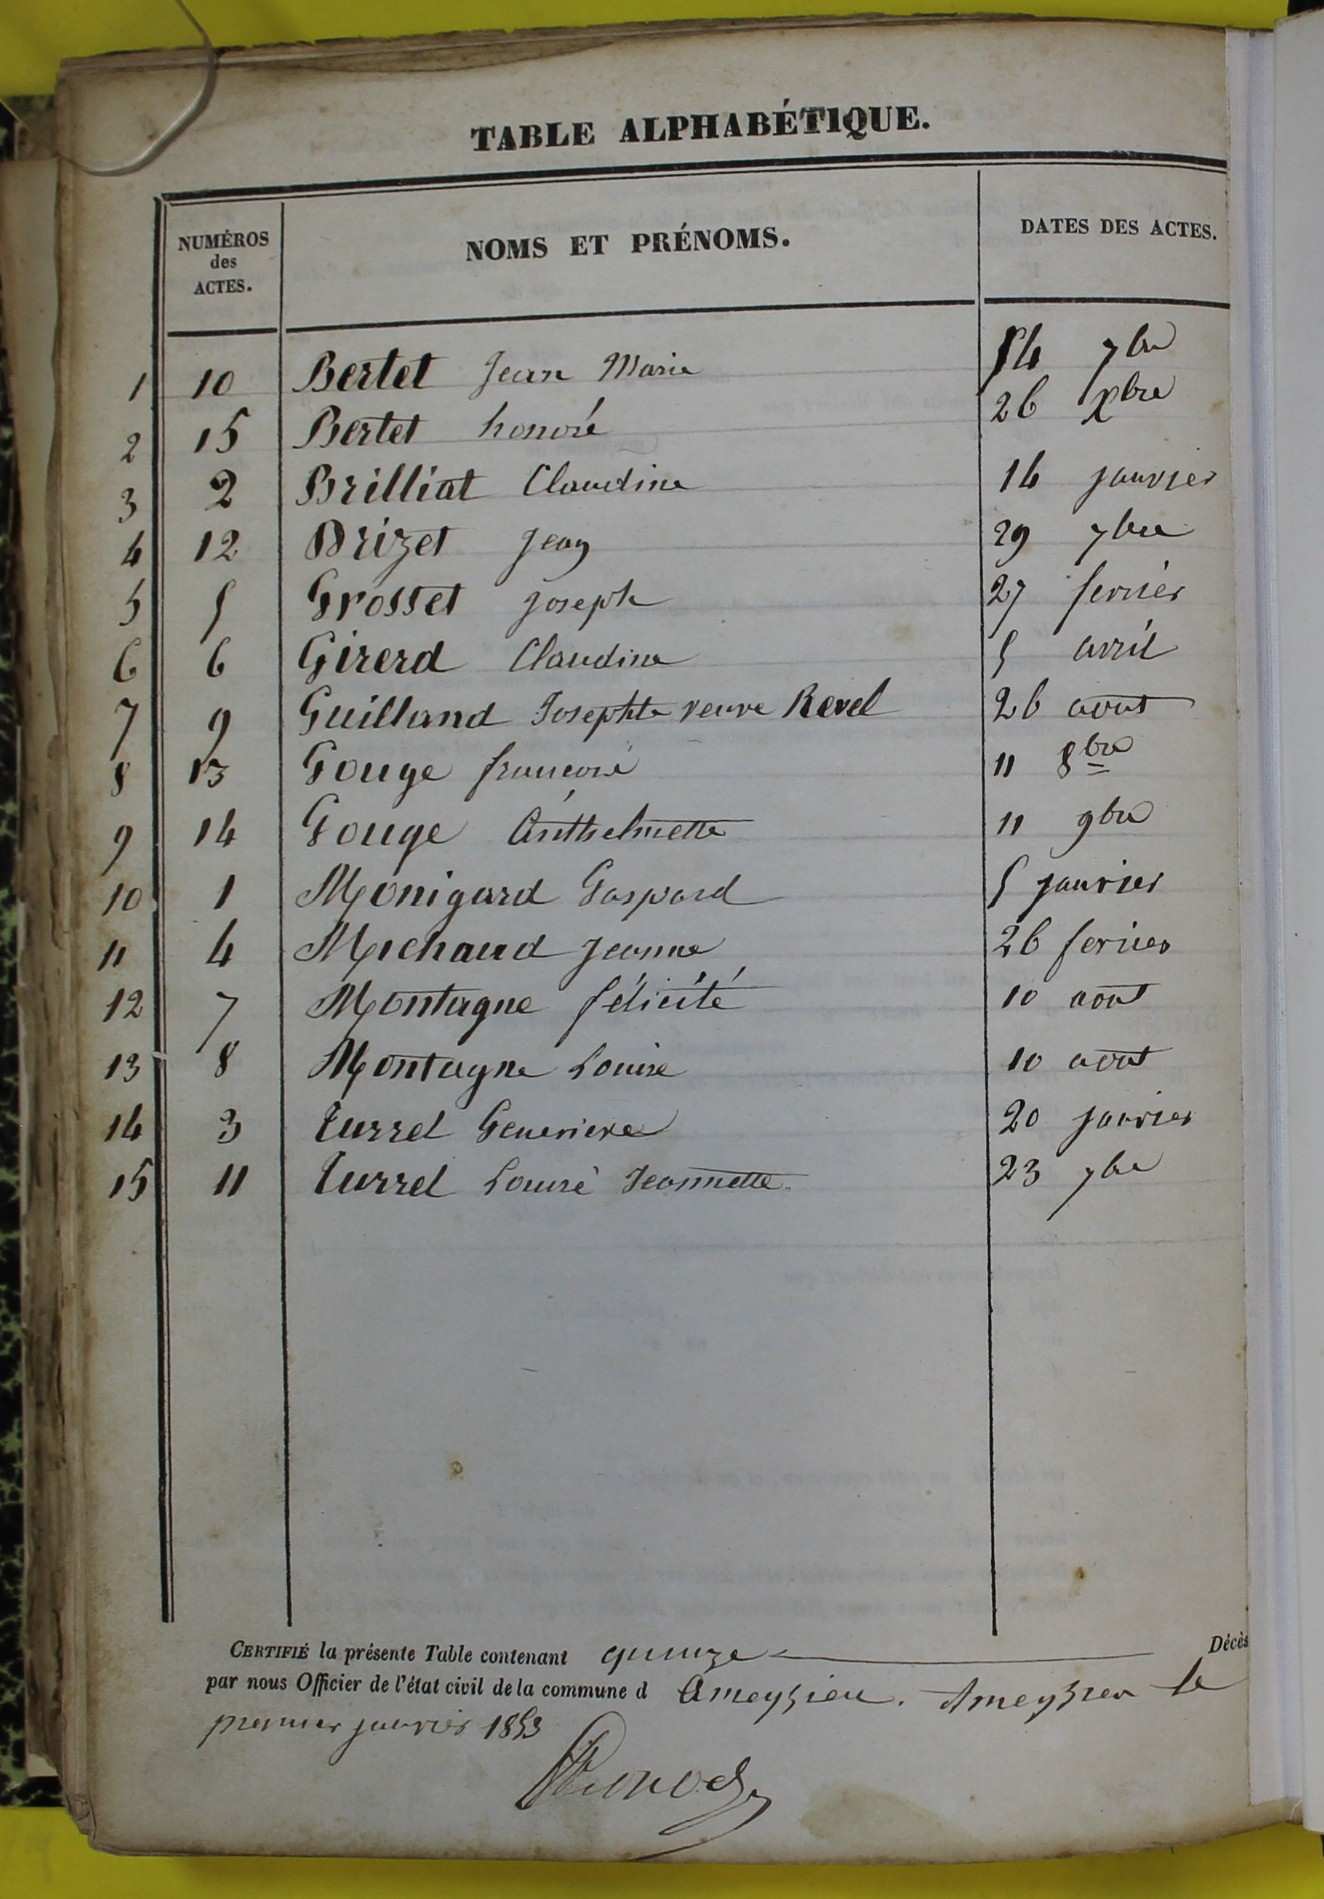 TABLE ALPHABÉTIQUE.
NUMÉROS des ACTES. NOMS ET PRÉNOMS. DATES DES ACTES.
1 10 Bertet Jean Marie 14 7bre
2 15 Bertet honoré 26 Xbre
3 2 Brilliat Claudine 14 janvier
4 12 Drizet Jean 29 7bre
5 5 Grosset Joseph 27 fevrier
6 6 Girerd Claudine 5 avril
7 9 Guilland Josephte veuve Revel 26 aout
8 13 Gouge 11 8bre
9 14 Gouge Anthelmette 11 9bre
10 1 Monigard Gaspard 5 janvier
11 4 Michaud Jeanne 26 fevrier
12 7 Montagne félicité 10 aout
13 8 Montagne Louise 10 aout
14 3 Turrel Genevieve 20 janvier
15 11 Turrel Louise Jeannette 23 7bre
CERTIFIÉ la présente Table contenant quinze Décès
par nous Officier de l'état civil de la commune d Ameyzieu. Ameyzieu le
premier janvier 1853